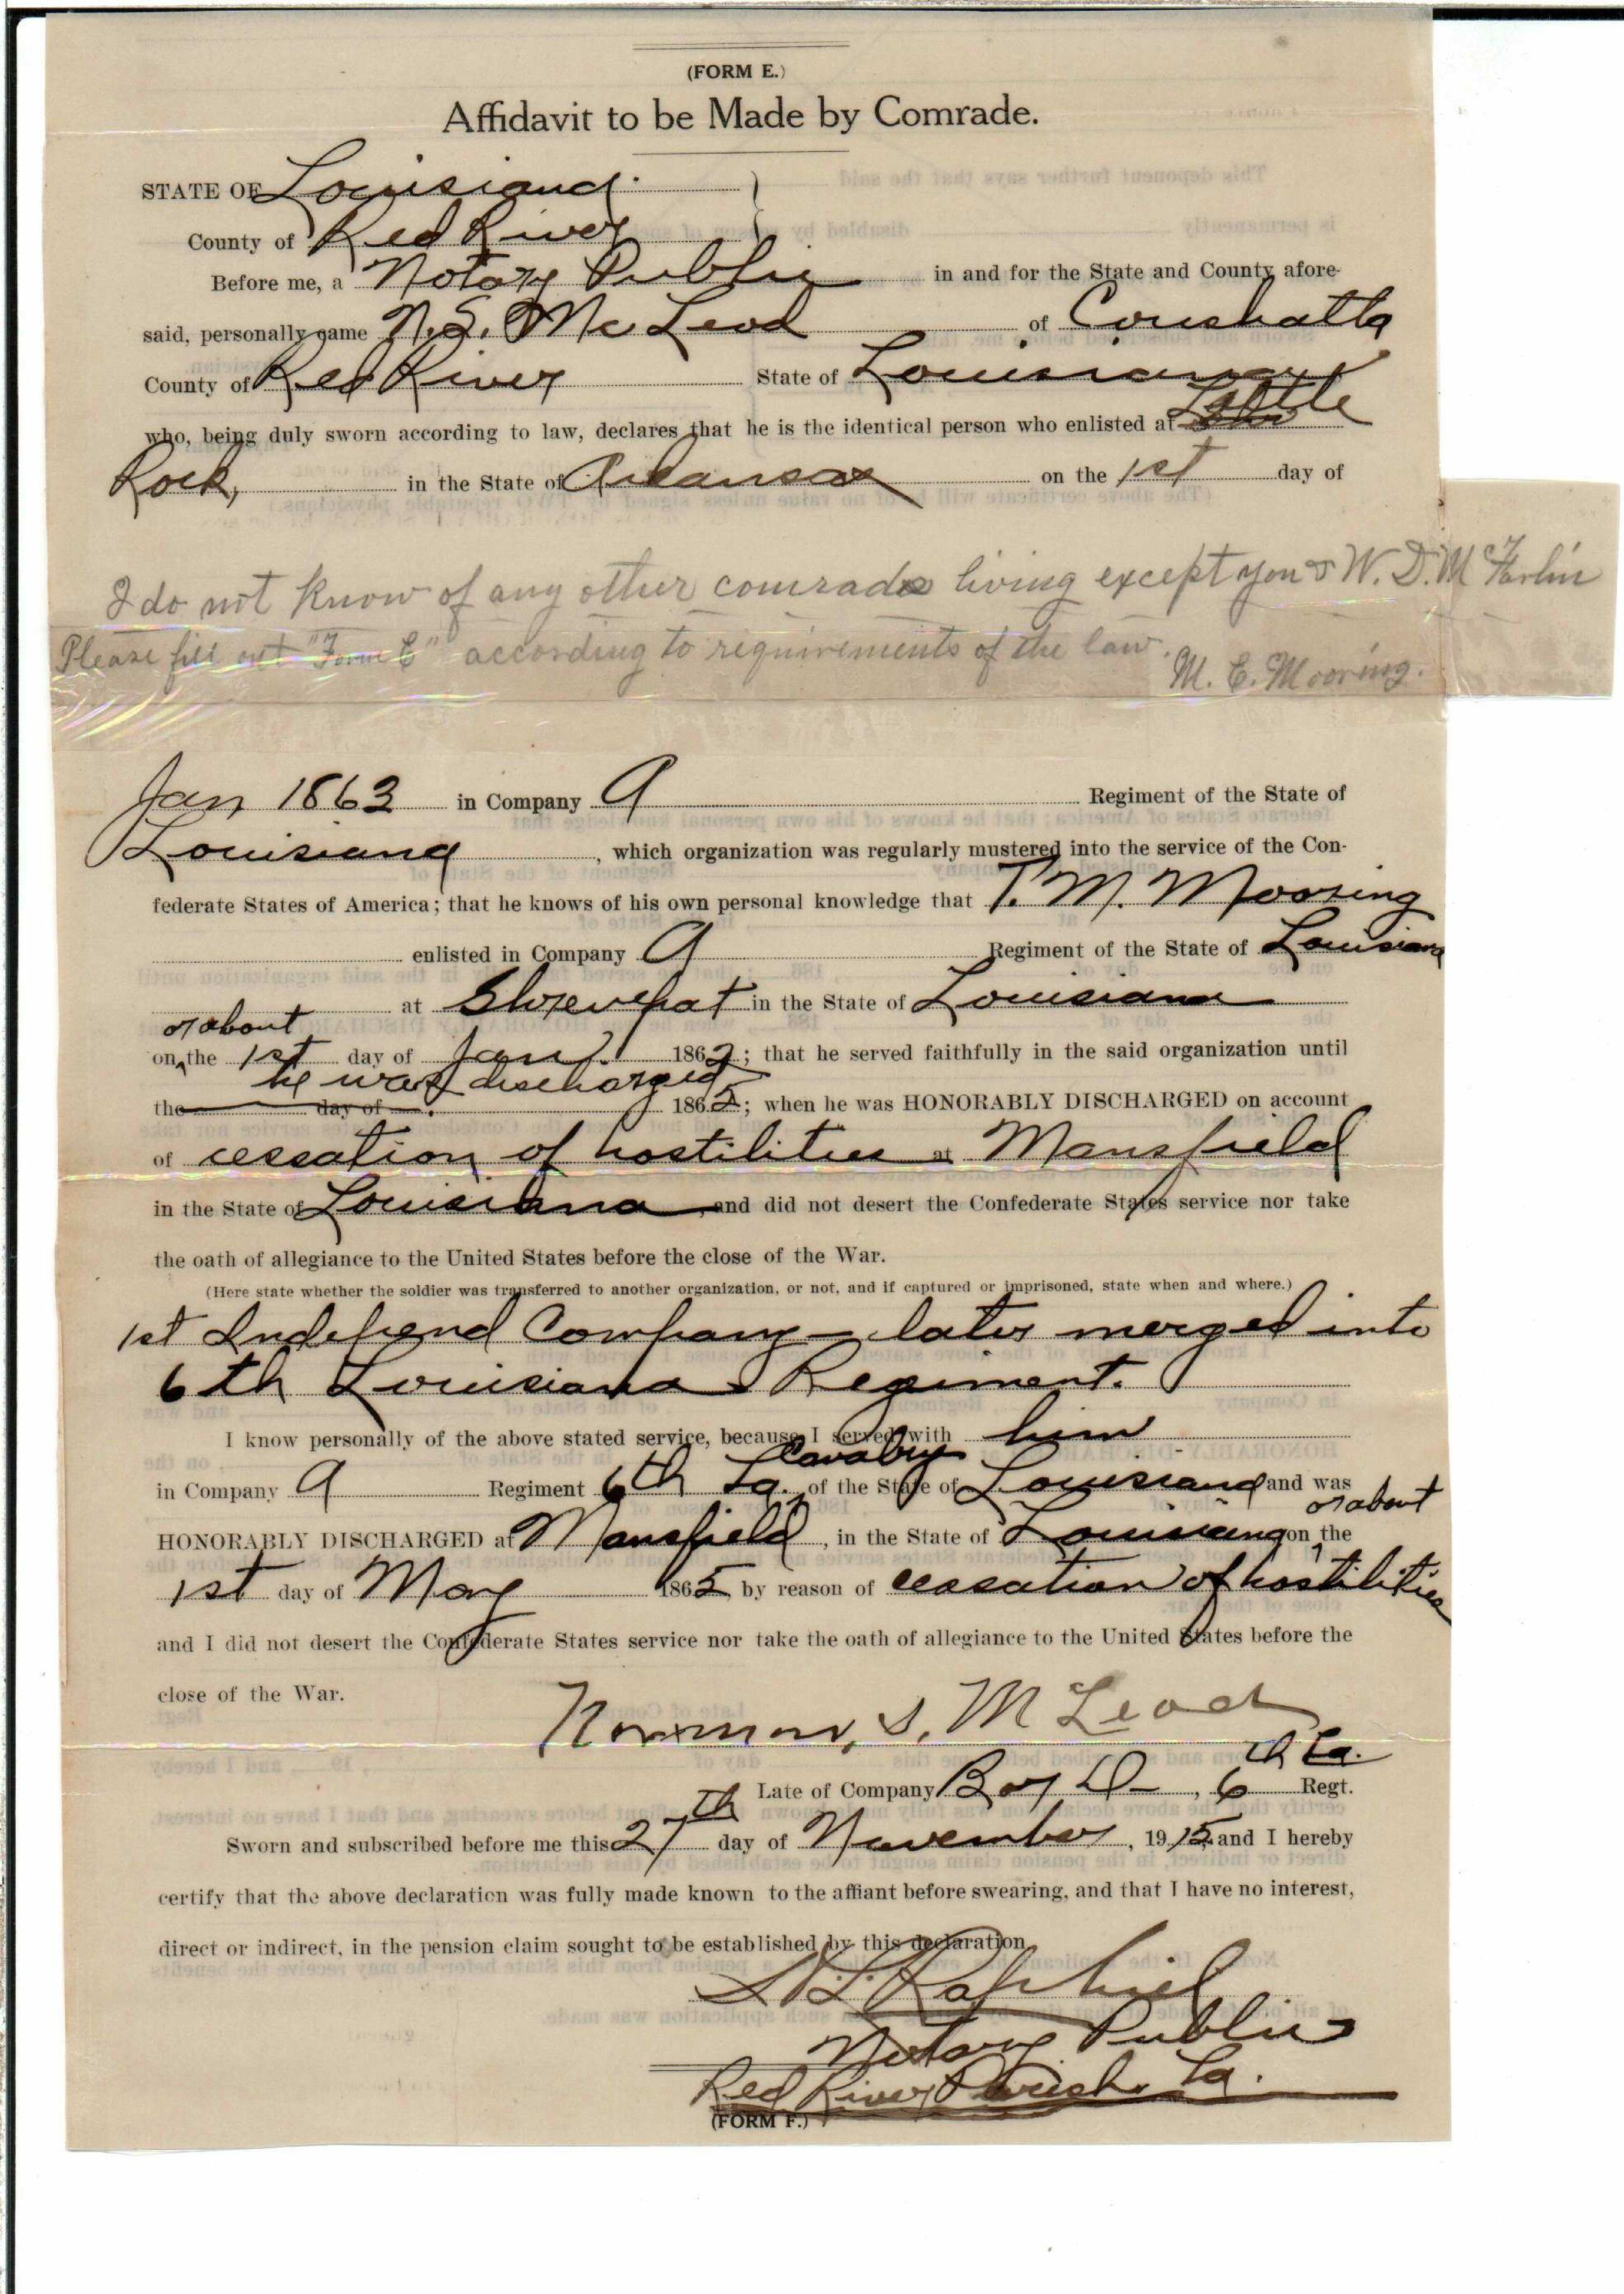 (FORM E.)
Affidavit to be Made by Comrade.
STATE OF Louisiana.
County of Red River
Before me, a Notary Public in and for the State and County afore-
said, personally came N. S. McLeod of Coushatta
County of Red River State of Louisiana
who, being duly sworn according to law, declares that he is the identical person who enlisted at Little
Rock, in the State of Arkansas on the 1st day of
I do not know of any other comrade living except you & W. D. McFarlin
Please fill out "Form E" according to requirements of the law.
M. E. Mooring.
Jan 1863 in Company A Regiment of the State of
Louisiana, which organization was regularly mustered into the service of the Con-
federate States of America; that he knows of his own personal knowledge that T. M. Mooring
enlisted in Company A Regiment of the State of Louisiana
at Shreveport in the State of Louisiana
or about
on the 1st day of Jan 1862; that he served faithfully in the said organization until
he was discharged
the day of 1865; when he was HONORABLY DISCHARGED on account
of cessation of hostilities at Mansfield
in the State of Louisiana, and did not desert the Confederate States service nor take
the oath of allegiance to the United States before the close of the War.
(Here state whether the soldier was transferred to another organization, or not, and if captured or imprisoned, state when and where.)
1st Independ Company – later merged into
6th Louisiana Regiment.
I know personally of the above stated service, because I served with him
Cavalry
in Company A Regiment 6th La., of the State of Louisiana and was
or about
HONORABLY DISCHARGED at Mansfield, in the State of Louisiana on the
1st day of May 1865, by reason of cessation of hostilities
and I did not desert the Confederate States service nor take the oath of allegiance to the United States before the
close of the War.
Norman, S. McLeod
Late of Company D, 6th La. Regt.
Sworn and subscribed before me this 27th day of November, 1915 and I hereby
certify that the above declaration was fully made known to the affiant before swearing, and that I have no interest,
direct or indirect, in the pension claim sought to be established by this declaration
Raphiel
Notary Public
Red River Parish La.
(FORM F.)